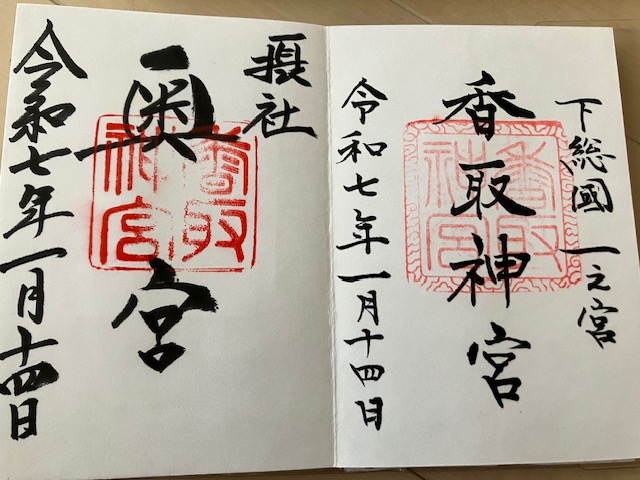 下総國 一之宮
香取神宮
香取神宮
令和七年一月十四日
摂社
奥宮
香取神宮
令和七年一月十四日